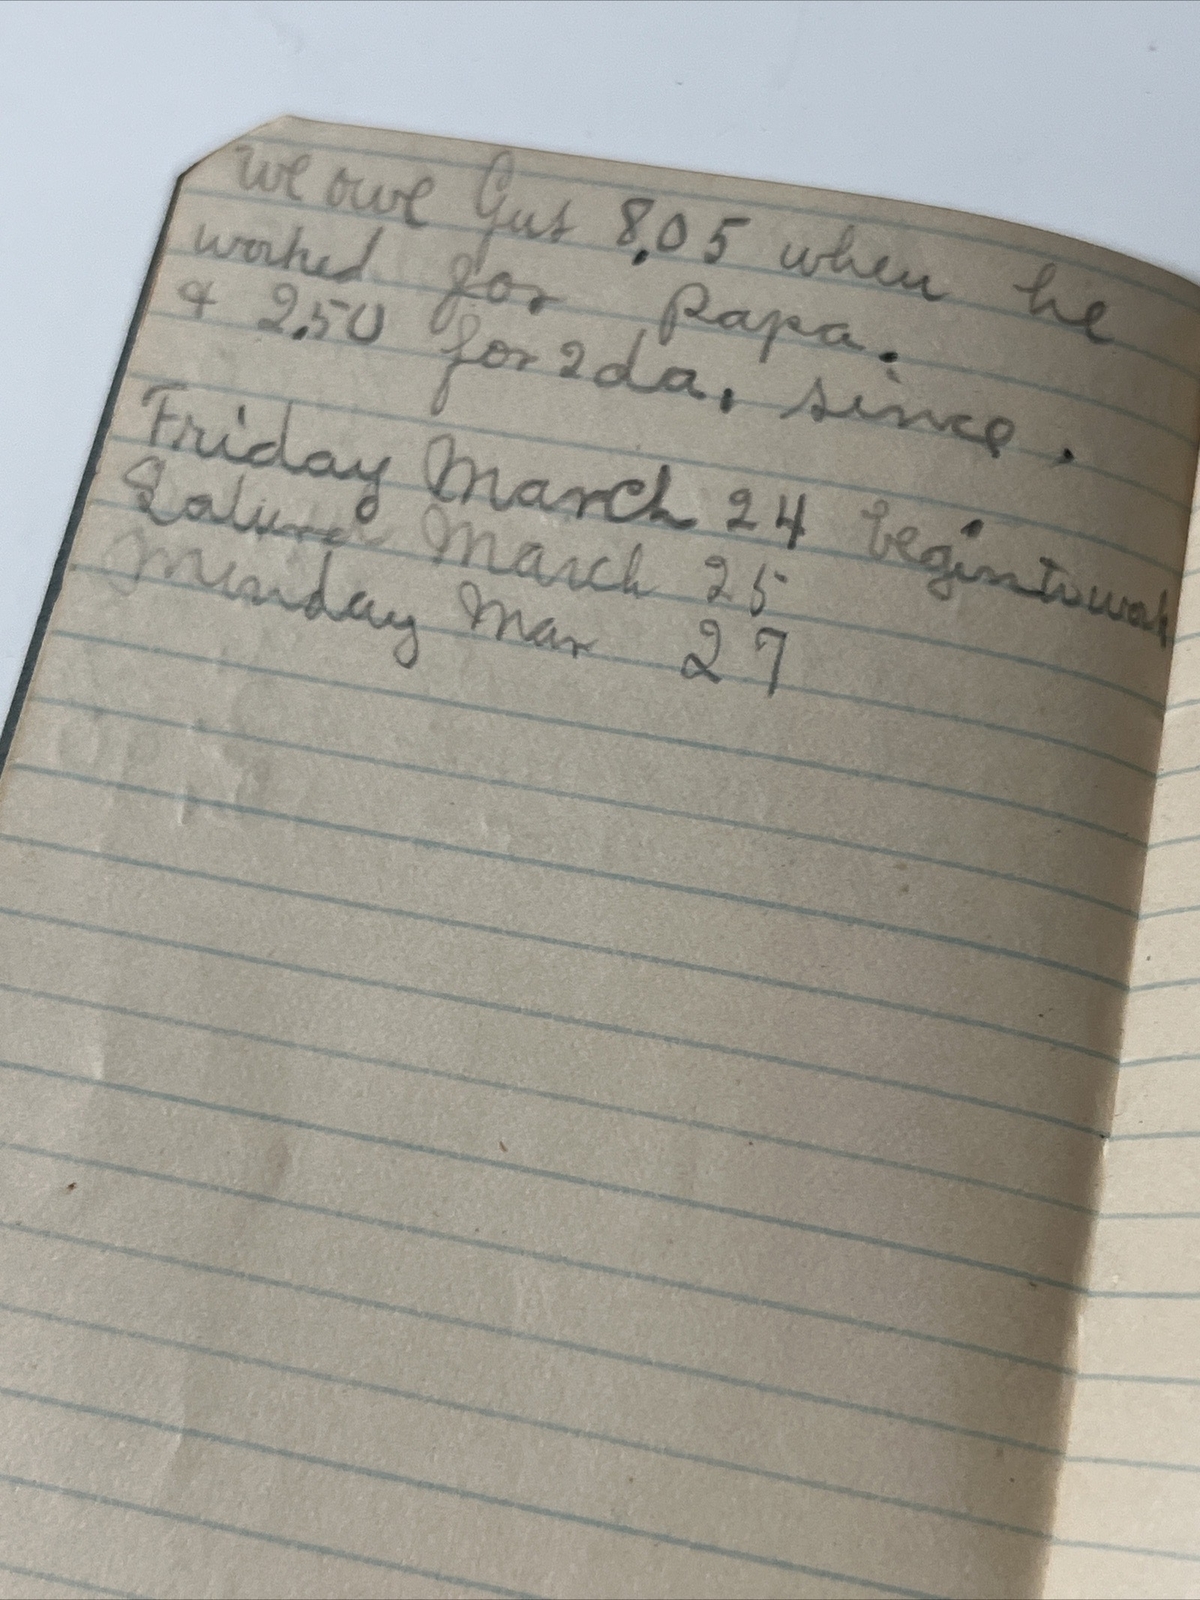 We owe Gus 8.05 when he
worked for Papa.
& 2.50 for 2 da, since.
Friday March 24 begin to work
March 25
Munday Mar 27